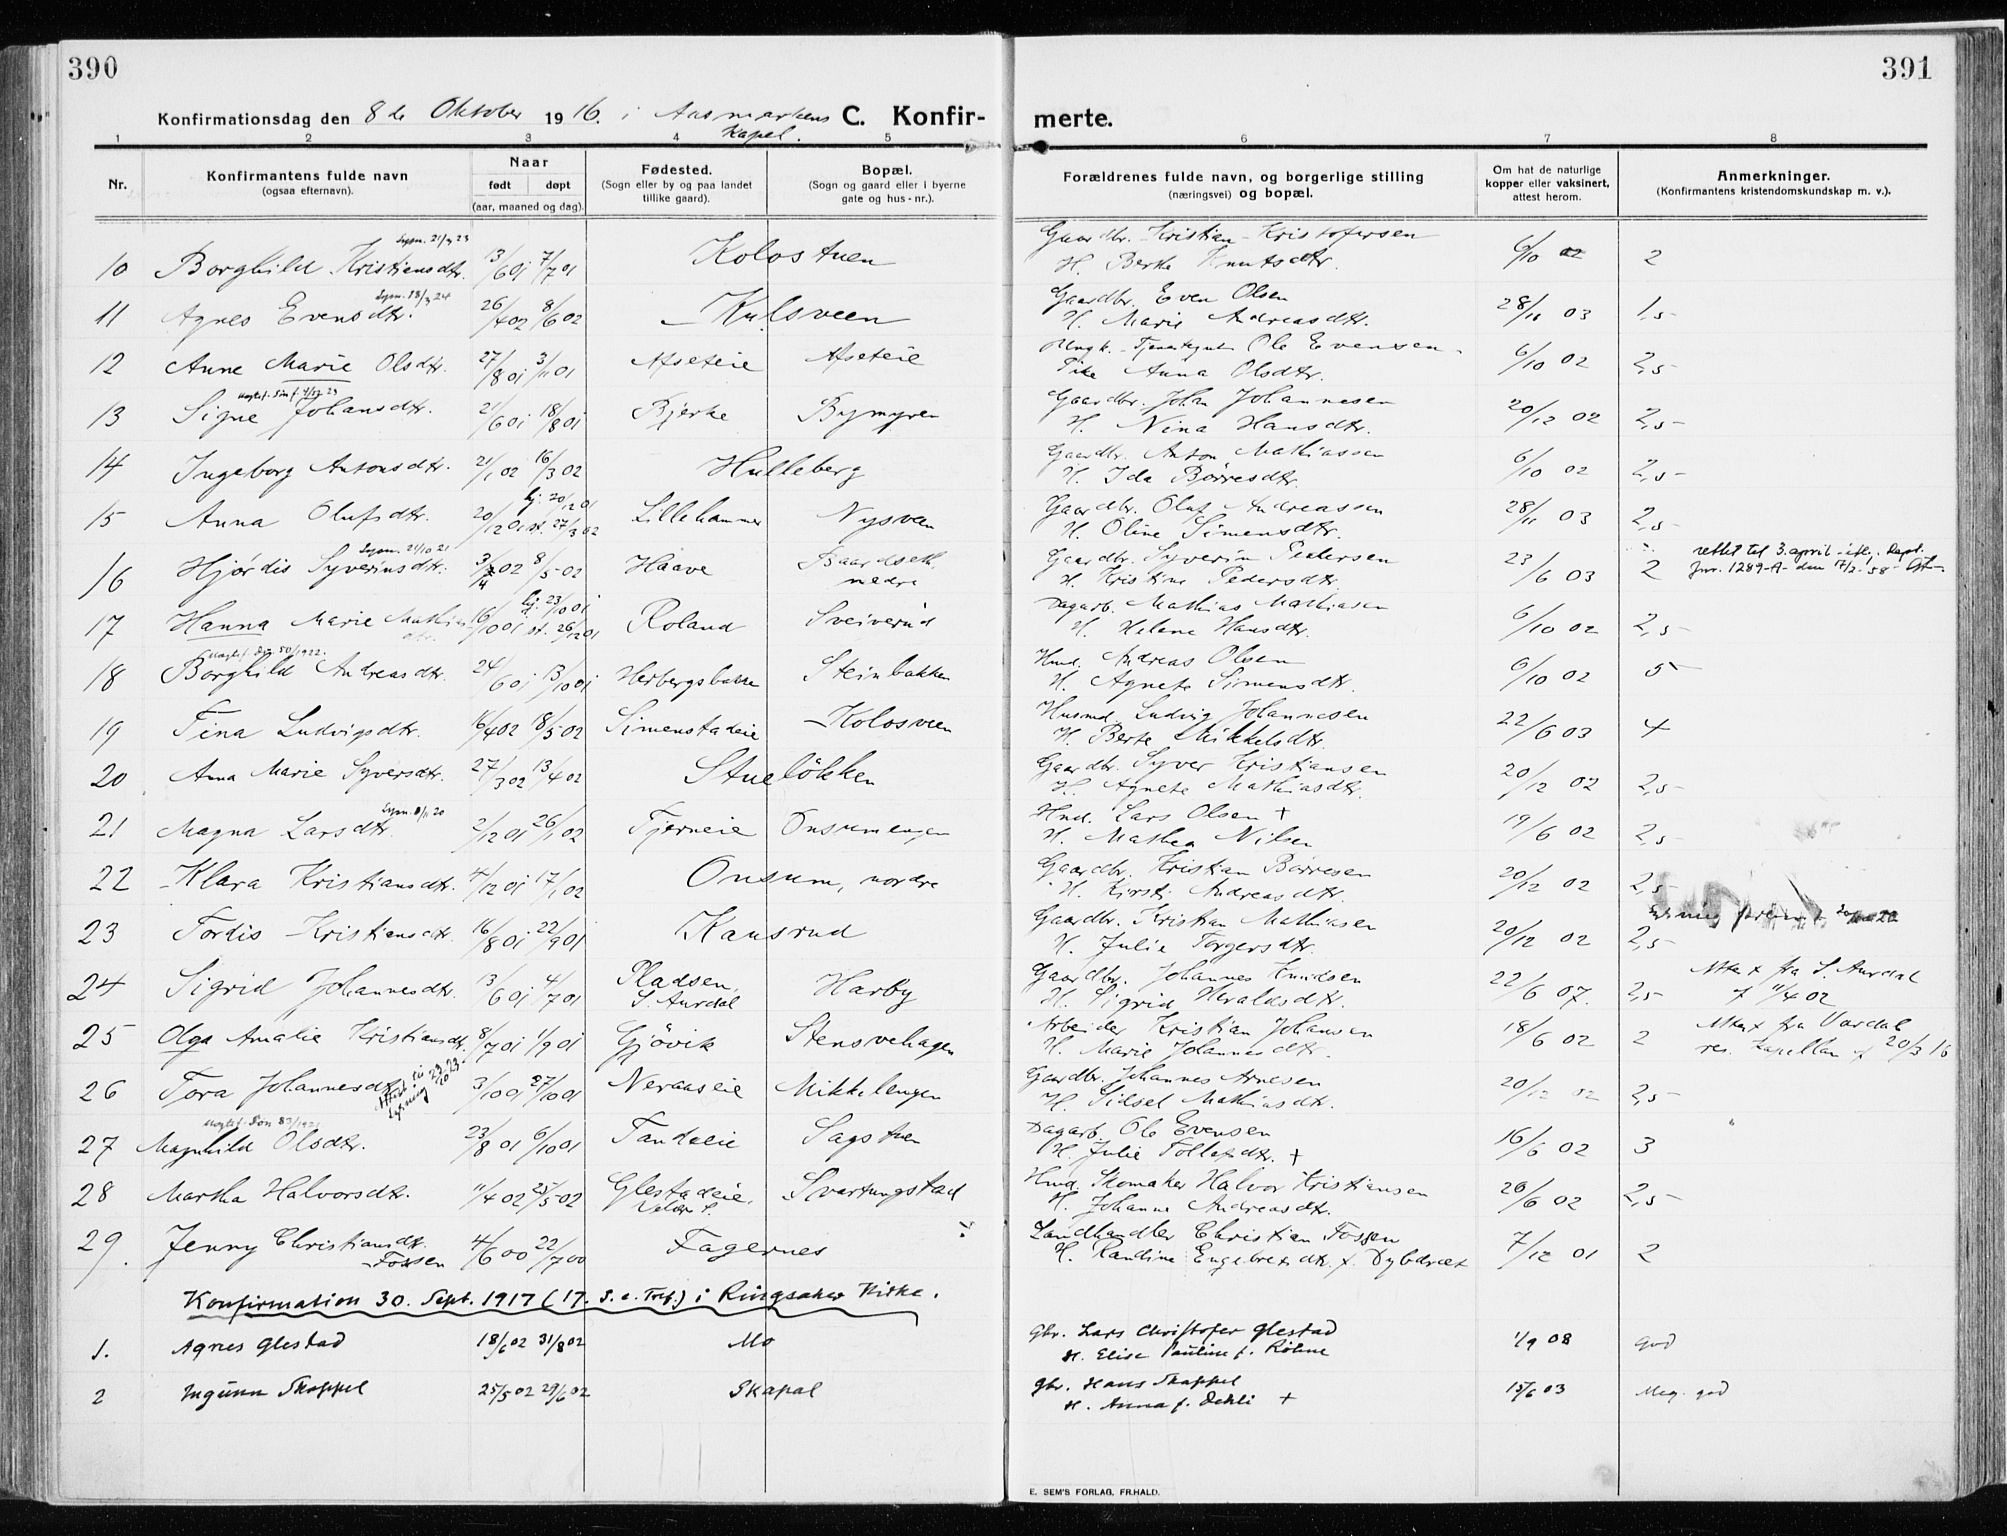 390
391
Konfirmationsdag den 8de Oktober 1916. i Aasmarkens C. Konfir- merte.
Kapel.
1 2 3 4 5 6 7 8
Nr.
Konfirmantens fulde navn
(ogsaa efternavn).
Naar
født døpt
(aar, maaned og dag).
Fødested.
(Sogn eller by og paa landet
tillike gaard).
Bopæl.
(Sogn og gaard eller i byerne
gate og hus-nr.).
Forældrenes fulde navn, og borgerlige stilling
(næringsvei) og bopæl.
Om hat de naturlige
kopper eller vaksinert,
attest herom.
Anmerkninger.
(Konfirmantens kristendomskundskap m. v.).
Lysn. 21/3 23 Gaardbr. Kristian Kristofersen
10 Borghild Kristiansdtr. 13/6 01 7/7 01 Kolostuen H. Berte Knutsdtr. 6/10 02 2
Lysn. 18/3 24 Gaardbr. Even Olsen
11 Agnes Evensdtr. 26/4 02 8/6 02 Kulsveen H. Marie Andreasdtr. 28/11 03 1,5
Ungk. Tjenestegut Ole Evensen
12 Anne Marie Olsdtr. 27/8 01 3/11 01 Afseteie Afseteie Pike Anna Olsdtr. 6/10 02 2,5
Gaardbr. Johan Johannesen
13 Signe Johansdtr. 21/6 01 18/8 01 Bjerke Bymyren H. Nina Hansdtr. 20/12 02 2,5
Gaardbr. Anton Mathiassen
14 Ingeborg Antonsdtr. 21/1 02 16/3 02 Hulleberg H. Ida Børresdtr. 6/10 02 2,5
hj. 20/12 01 Gaardbr. Oluf Andreassen
15 Anna Olufsdtr. 20/12 01 st. 27/3 02 Lillehammer Nysveen H. Oline Simensdtr. 28/11 03 2,5
Lysn. 21/10 21 Gaardbr. Syverin Pedersen rettet til 3. april iflg. Dept.
16 Hjørdis Syverinsdtr. 3/4 02 8/5 02 Haave Baardseth nedre H. Kristine Pedersdtr. 23/6 03 2 Jnr. 1289-A- den 17/2-58
hj. 23/10 01 Dagarb. Mathias Mathiasen
17 Hanna Marie Mathiasdtr. 16/10 01 st. 26/12 01 Roland Sveiverud H. Helene Hansdtr. 6/10 02 2,5
50/1922. Hmd. Andreas Olsen
18 Borghild Andreasdtr. 24/6 01 13/10 01 Herbergsbakke Steinbakken H. Agnete Simensdtr. 6/10 02 5
Husmd. Ludvig Johannesen
19 Tina Ludvigsdtr. 16/4 02 18/5 02 Simenstadeie Kolosveen H. Berte Mikkelsdtr. 22/6 03 4
Gaardbr. Syver Kristiansen
20 Anna Marie Syversdtr. 27/3 02 13/4 02 Stueløkken H. Agnete Mathiasdtr. 20/12 02 2,5
Lysn. 8/1 20 Hmd. Lars Olsen +
21 Magna Larsdtr. 2/12 01 26/1 02 Tjerneie Onsumengen H. Mathea Nilsen 19/6 02 2,5
Gaardbr. Kristian Børresen
22 Klara Kristiansdtr. 4/12 01 17/1 02 Onsum, nordre H. Kirsti Andreasdtr. 20/12 02 2,5
Gaardbr. Kristian Mathiasen
23 Tordis Kristiansdtr. 16/8 01 22/9 01 Kausrud H. Julie Torgersdtr. 20/12 02 2,5
Gaardbr. Johannes Knudsen
24 Sigrid Johannesdtr. 13/6 01 4/7 01 Pladsen, S. Aurdal Harby H. Sigrid Heraldsdtr. 22/6 07. 2,5 Attest fra S. Aurdal
af 11/4 02
Arbeider Kristian Johansen
25 Olga Amalie Kristiansdtr. 8/7 01 1/9 01 Gjøvik Stensvehagen H. Marie Johannesdtr. 18/6 02 2 Attest fra Vardal
res. kapellan af 20/3 16
Gaardbr. Johannes Arnesen
26 Tora Johannesdtr. Attest til lysning 3/10 01 27/10 01 Neraaseie Mikkelengen H. Sidsel Mathiasdtr. 20/12 02 2,5
Dagarb. Ole Evensen
27 Magnhild Olsdtr. 23/8 01 6/10 01 Tandeeie Sagstuen H. Julie Tollefsdtr. + 16/6 02 3
Hmd. Skomaker Halvor Kristiansen
28 Martha Halvorsdtr. 11/4 02 25/5 02 Glestadeie, Svartungstad H. Johanne Andreasdtr. 26/6 02 2,5
Landhandler Christian Fossen
29. Jenny Christiansdtr. Fossen 4/6 00 22/7 00 Fagernes H. Randine Engebretsdtr. f. Dybdræt 7/12 01 2
Konfirmation 30. Sept. 1917 (17. S. e. Tref.) i Ringsaker Kirke.
Gbr. Lars Christofer Glestad
1. Agnes Glestad 18/6 02 31/8 02 Mo H. Elise Pauline f. Røhne 1/9 08 god
Gbr. Hans Skappel
2 Ingunn Skappel 25/5 02 29/6 02 Skapal H. Anna f. Dehli + 15/6 03 Meg. god
E. SEM'S FORLAG, FR.HALD.